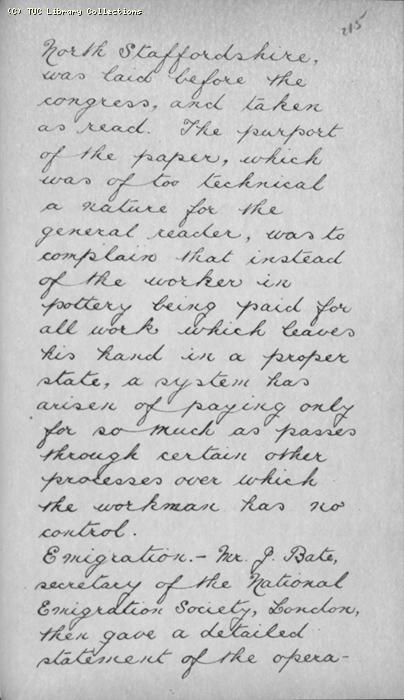 (C) TUC Library Collections
215
North Staffordshire,
was laid before the
congress, and taken
as read. The purport
of the paper, which
was of too technical
a nature for the
general reader, was to
complain that instead
of the worker in
pottery being paid for
all work which leaves
his hand in a proper
state, a system has
arisen of paying only
for so much as passes
through certain other
processes over which
the workman has no
control.
Emigration.- Mr. J. Bate,
secretary of the National
Emigration Society, London,
then gave a detailed
statement of the opera-